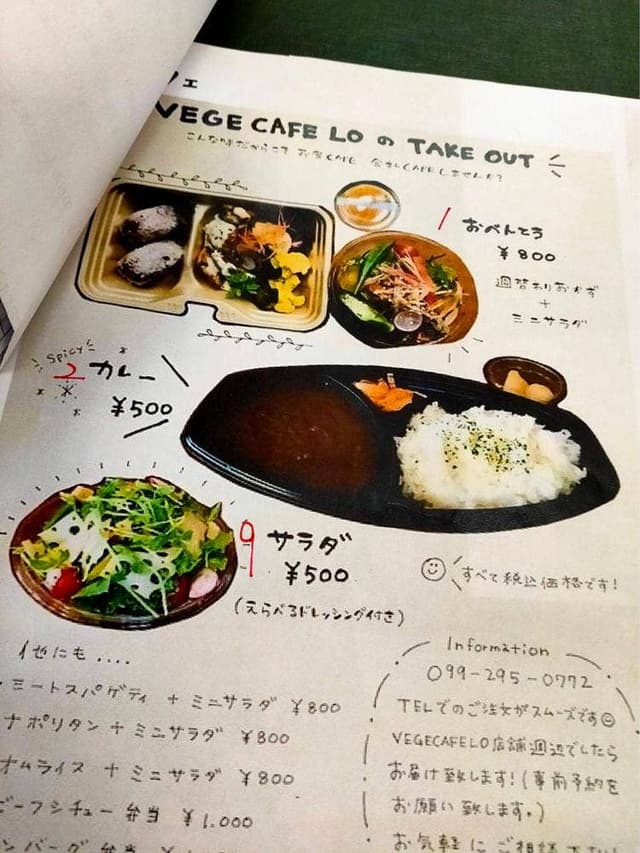 ェ
VEGE CAFE LO の TAKE OUT
こんな時だからこそ お家CAFE 会社CAFEしませんか?
1 おべんとう
¥800
週替わりおかず
+
ミニサラダ
Spicy
2 カレー
¥500
9 サラダ
¥500
(えらべるドレッシング付き)
すべて税込価格です!
他にも....
・ミートスパゲティ + ミニサラダ ¥800
ナポリタン + ミニサラダ ¥800
オムライス + ミニサラダ ¥800
ビーフシチュー弁当 ¥1,000
ンバーグ弁当
Information
099-295-0772
TELでのご注文がスムーズです
VEGECAFELO店舗週辺でしたら
お届け致します!(事前予約を
お願い致します。)
お気軽にご相談